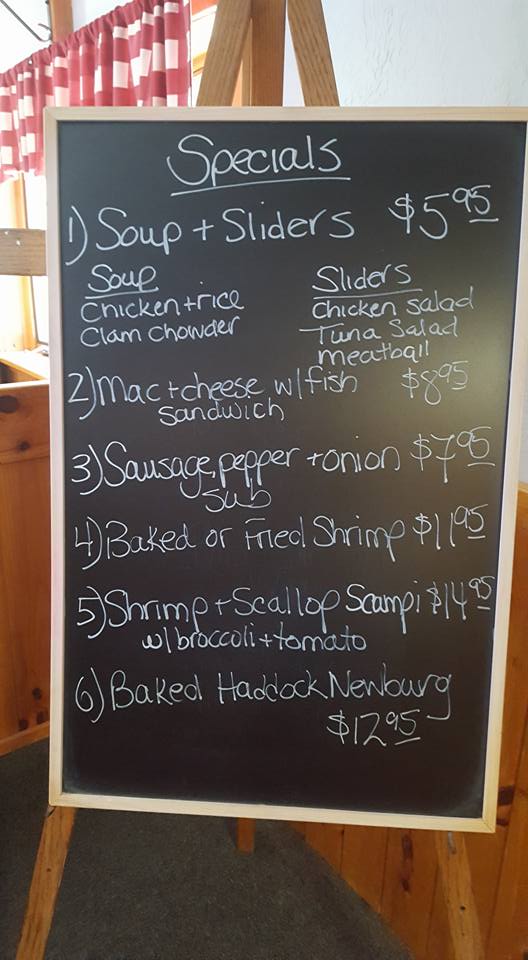 Specials
1) Soup + Sliders $5.95
Soup Sliders
Chicken + rice Chicken Salad
Clam Chowder Tuna Salad
meatball
2) Mac + cheese w/ fish $8.95
Sandwich
3) Sausage, pepper + onion $7.95
Sub
4) Baked or Fried Shrimp $11.95
5) Shrimp + Scallop Scampi $14.95
w/ broccoli + tomato
6) Baked Haddock Newburg
$12.95